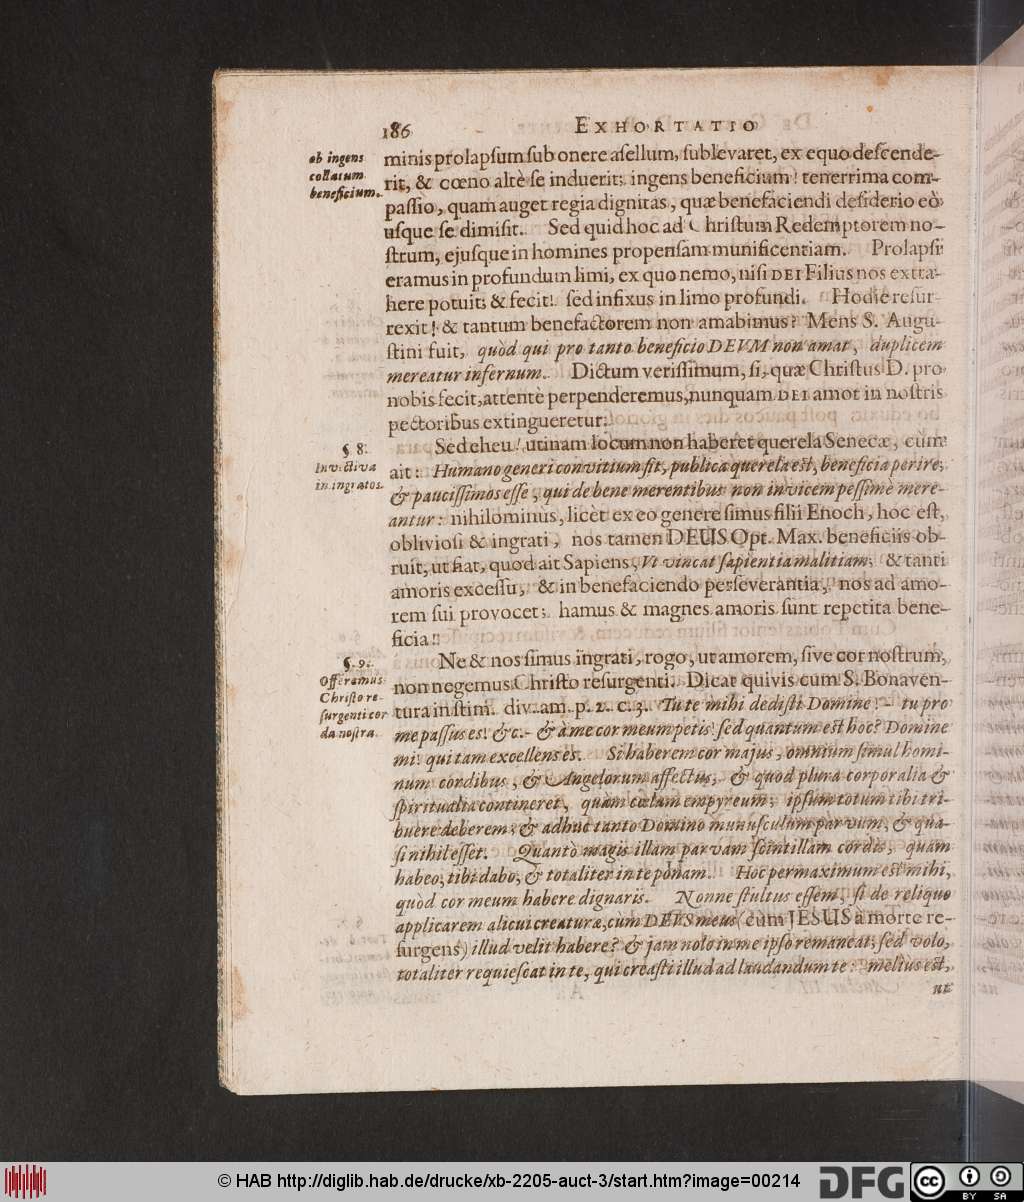 186 EXHORTATIO
ob ingens
collatum
beneficium.
minis prolapsum sub onere asellum, sublevaret, ex equo descende-
rit, & cœno altè se induerit: ingens beneficium! tenerrima com-
passio, quam auget regia dignitas, quæ benefaciendi desiderio eò
usque se dimisit. Sed quid hoc ad Christum Redemptorem no-
strum, ejusque in homines propensam munificentiam. Prolapsi
eramus in profundum limi, ex quo nemo, nisi DEI Filius nos extra-
here potuit; & fecit! sed infixus in limo profundi. Hodie resur-
rexit! & tantum benefactorem non amabimus? Mens S. Augu-
stini fuit, quòd qui pro tanto beneficio DEVM non amat, duplicem
mereatur infernum. Dictum verissimum, si, quæ Christus D. pro
nobis fecit, attentè perpenderemus, nunquam DEI amor in nostris
pectoribus extingueretur.
§. 8.
Invectiva
in ingratos.
Sed eheu! utinam locum non haberet querela Senecæ, cùm
ait: Humano generi convitium fit, publica querela est, beneficia perire;
& paucissimos esse, qui de bene merentibus non invicem pessimè mere-
antur: nihilominùs, licèt ex eo genere simus filii Enoch, hoc est,
obliviosi & ingrati, nos tamen DEUS Opt. Max. beneficiis ob-
ruit, ut fiat, quod ait Sapiens, Vt vincat sapientia malitiam; & tanti
amoris excessu, & in benefaciendo perseverantia, nos ad amo-
rem sui provocet; hamus & magnes amoris sunt repetita bene-
ficia!
§. 9.
Offeramus
Christo re-
surgenti cor
da nostra.
Ne & nos simus ingrati, rogo, ut amorem, sive cor nostrum,
non negemus Christo resurgenti. Dicat quivis cum S. Bonaven-
tura in stim. div. am. p. 2. c. 3. Tu te mihi dedisti Domine! - tu pro
me passus es! &c. - & à me cor meum petis! sed quantum est hoc? Domine
mi! qui tam excellens es. Si haberem cor majus, omnium simul homi-
num cordibus, & Angelorum affectus, & quod plura corporalia &
spiritualia contineret, quàm cœlum empyreum; ipsum totum tibi tri-
buere deberem; & adhuc tanto Domino munusculum parvum, & qua-
si nihil esset. Quantò magis illam parvam scintillam cordis, quam
habeo, tibi dabo, & totaliter in te ponam. Hoc permaximum est mihi,
quòd cor meum habere dignaris. Nonne stultus essem, si de reliquo
applicarem alicui creaturæ, cùm DEVS meus (cùm JESUS à morte re-
surgens) illud velit habere? & jam nolo in me ipso remaneat; sed volo,
totaliter requiescat in te, qui creasti illud ad laudandum te: melius est,
ut
© HAB http://diglib.hab.de/drucke/xb-2205-auct-3/start.htm?image=00214
DFG cc BY SA